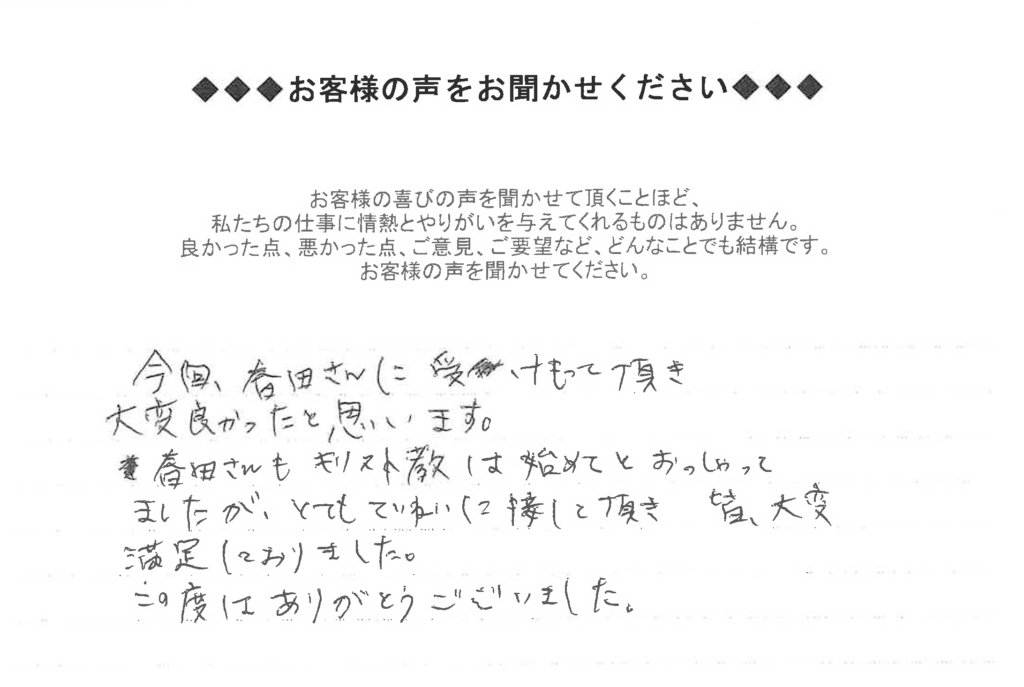 ◆◆◆お客様の声をお聞かせください◆◆◆
お客様の喜びの声を聞かせて頂くことほど、
私たちの仕事に情熱とやりがいを与えてくれるものはありません。
良かった点、悪かった点、ご意見、ご要望など、どんなことでも結構です。
お客様の声を聞かせてください。
今回、春田さんに受けもって頂き
大変良かったと思います。
春田さんもキリスト教は始めてとおっしゃって
ましたが、とてもていねいに接して頂き 皆、大変
満足しておりました。
この度はありがとうございました。